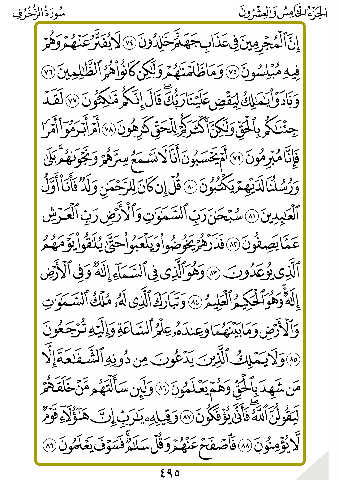 الجزء الخامس والعشرون
سورة الزخرف
إِنَّ ٱلْمُجْرِمِينَ فِى عَذَابِ جَهَنَّمَ خَٰلِدُونَ ٧٤ لَا يُفَتَّرُ عَنْهُمْ وَهُمْ
فِيهِ مُبْلِسُونَ ٧٥ وَمَا ظَلَمْنَٰهُمْ وَلَٰكِن كَانُوا۟ هُمُ ٱلظَّٰلِمِينَ ٧٦
وَنَادَوْا۟ يَٰمَٰلِكُ لِيَقْضِ عَلَيْنَا رَبُّكَ قَالَ إِنَّكُم مَّٰكِثُونَ ٧٧ لَقَدْ
جِئْنَٰكُم بِٱلْحَقِّ وَلَٰكِنَّ أَكْثَرَكُمْ لِلْحَقِّ كَٰرِهُونَ ٧٨ أَمْ أَبْرَمُوٓا۟ أَمْرًا
فَإِنَّا مُبْرِمُونَ ٧٩ أَمْ يَحْسَبُونَ أَنَّا لَا نَسْمَعُ سِرَّهُمْ وَنَجْوَىٰهُم بَلَىٰ
وَرُسُلُنَا لَدَيْهِمْ يَكْتُبُونَ ٨٠ قُلْ إِن كَانَ لِلرَّحْمَٰنِ وَلَدٌ فَأَنَا۠ أَوَّلُ
ٱلْعَٰبِدِينَ ٨١ سُبْحَٰنَ رَبِّ ٱلسَّمَٰوَٰتِ وَٱلْأَرْضِ رَبِّ ٱلْعَرْشِ
عَمَّا يَصِفُونَ ٨٢ فَذَرْهُمْ يَخُوضُوا۟ وَيَلْعَبُوا۟ حَتَّىٰ يُلَٰقُوا۟ يَوْمَهُمُ
ٱلَّذِى يُوعَدُونَ ٨٣ وَهُوَ ٱلَّذِى فِى ٱلسَّمَآءِ إِلَٰهٌ وَفِى ٱلْأَرْضِ
إِلَٰهٌ وَهُوَ ٱلْحَكِيمُ ٱلْعَلِيمُ ٨٤ وَتَبَارَكَ ٱلَّذِى لَهُۥ مُلْكُ ٱلسَّمَٰوَٰتِ
وَٱلْأَرْضِ وَمَا بَيْنَهُمَا وَعِندَهُۥ عِلْمُ ٱلسَّاعَةِ وَإِلَيْهِ تُرْجَعُونَ
٨٥ وَلَا يَمْلِكُ ٱلَّذِينَ يَدْعُونَ مِن دُونِهِ ٱلشَّفَٰعَةَ إِلَّا
مَن شَهِدَ بِٱلْحَقِّ وَهُمْ يَعْلَمُونَ ٨٦ وَلَئِن سَأَلْتَهُم مَّنْ خَلَقَهُمْ
لَيَقُولُنَّ ٱللَّهُ فَأَنَّىٰ يُؤْفَكُونَ ٨٧ وَقِيلِهِۦ يَٰرَبِّ إِنَّ هَٰٓؤُلَآءِ قَوْمٌ
لَّا يُؤْمِنُونَ ٨٨ فَٱصْفَحْ عَنْهُمْ وَقُلْ سَلَٰمٌ فَسَوْفَ يَعْلَمُونَ ٨٩
٤٩٥